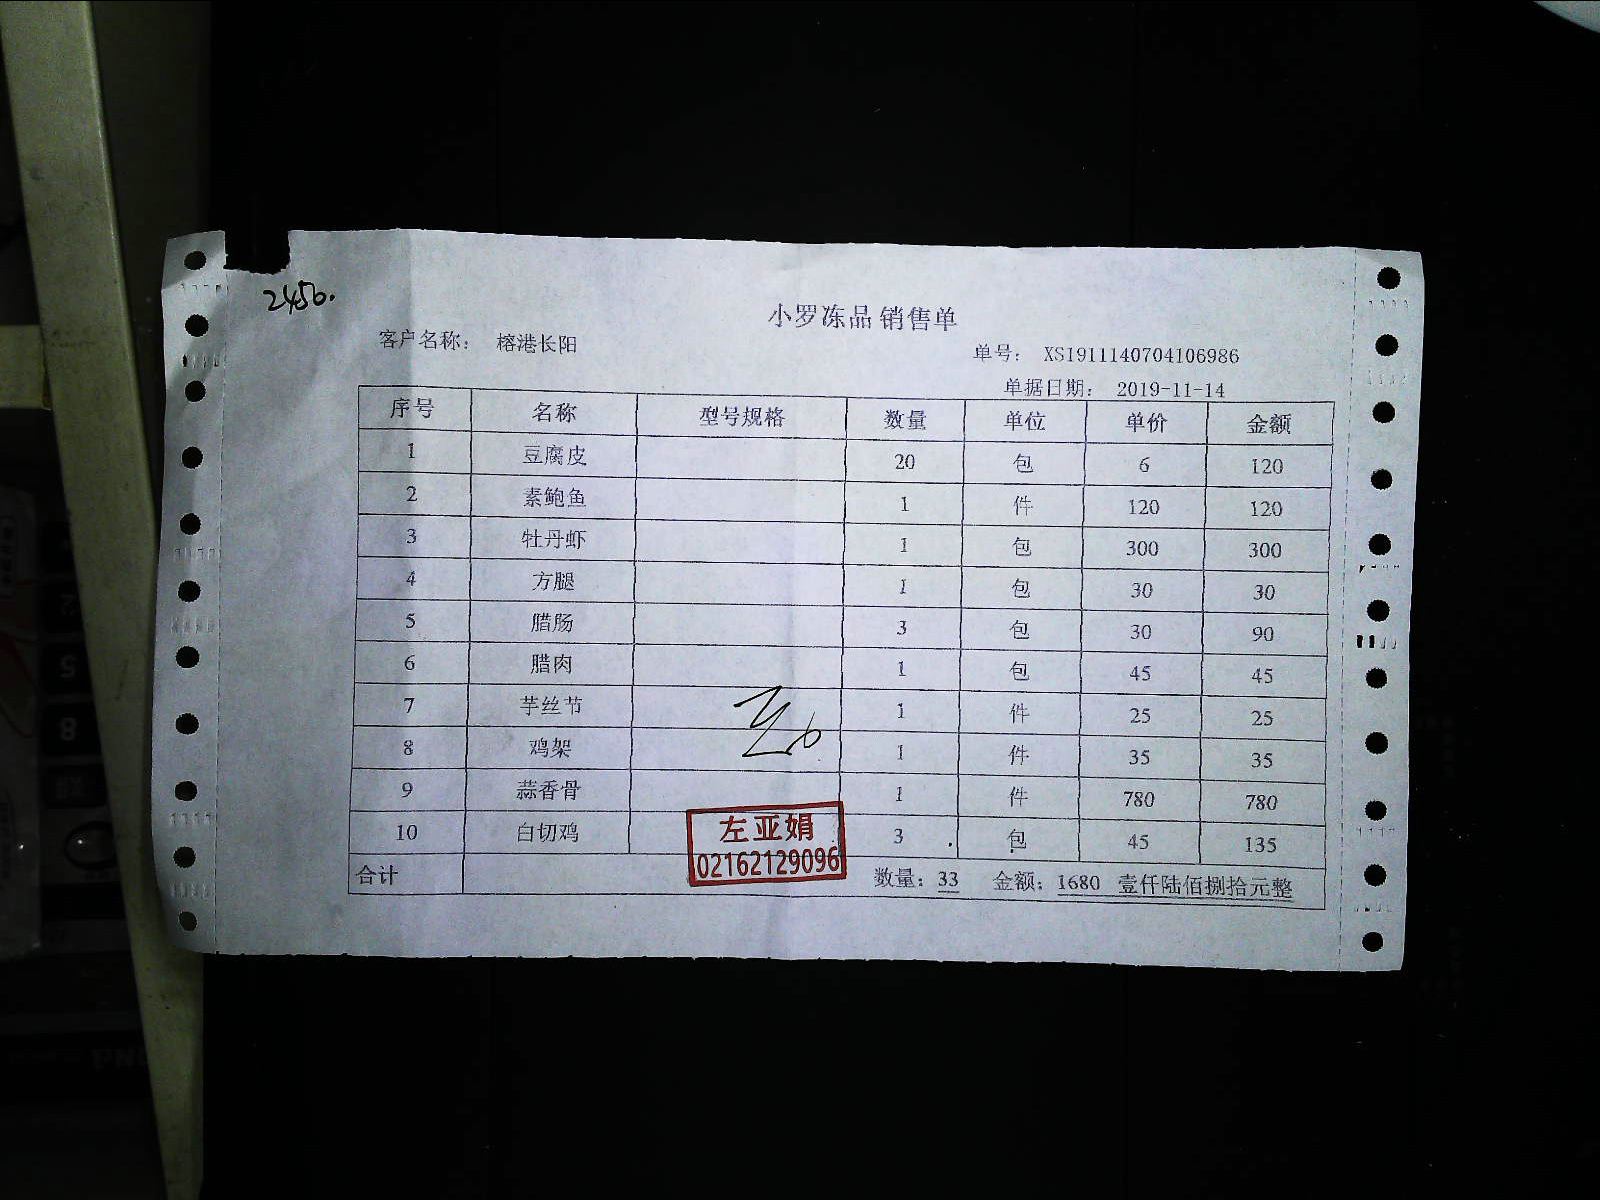 2456.
小罗冻品 销售单
客户名称： 榕港长阳
单号： XS1911140704106986
单据日期： 2019-11-14
序号 名称 型号规格 数量 单位 单价 金额
1 豆腐皮 20 包 6 120
2 素鲍鱼 1 件 120 120
3 牡丹虾 1 包 300 300
4 方腿 1 包 30 30
5 腊肠 3 包 30 90
6 腊肉 1 包 45 45
7 芋丝节 1 件 25 25
8 鸡架 1 件 35 35
9 蒜香骨 1 件 780 780
10 白切鸡 3 包 45 135
左亚娟
02162129096
合计 数量：33 金额：1680 壹仟陆佰捌拾元整